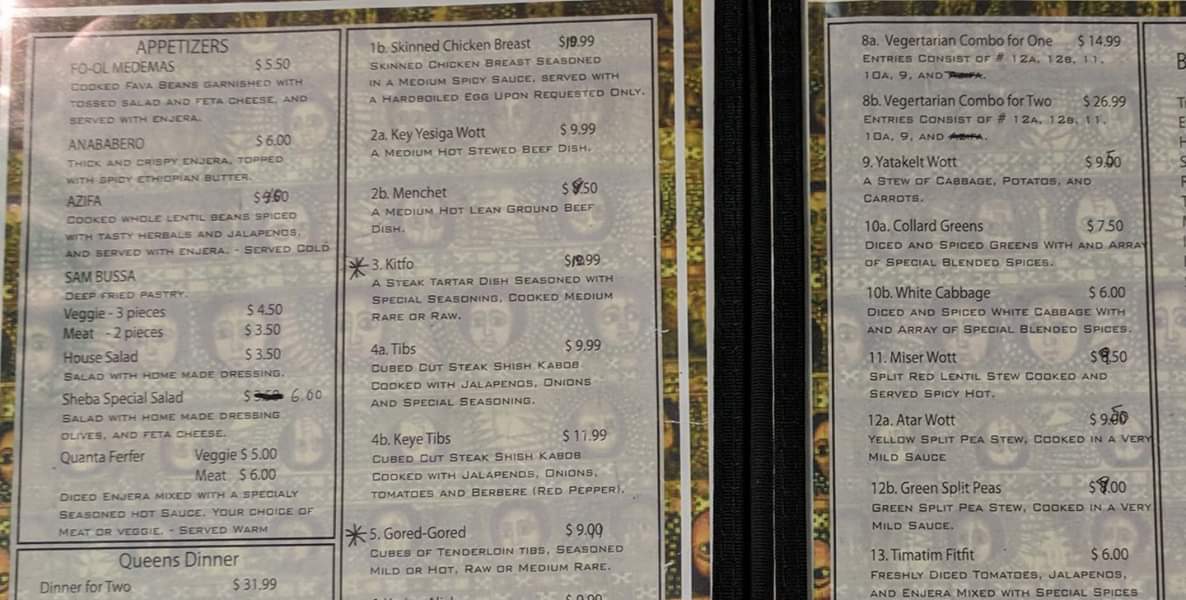 APPETIZERS
FO-OL MEDEMAS $ 5.50
COOKED FAVA BEANS GARNISHED WITH
TOSSED SALAD AND FETA CHEESE, AND
SERVED WITH ENJERA.
ANABABERO $ 6.00
THICK AND CRISPY ENJERA, TOPPED
WITH SPICY ETHIOPIAN BUTTER.
AZIFA
COOKED WHOLE LENTIL BEANS SPICED
WITH TASTY HERBALS AND JALAPENOS,
AND SERVED WITH ENJERA. - SERVED COLD
SAM BUSSA
DEEP FRIED PASTRY.
Veggie - 3 pieces $ 4.50
Meat - 2 pieces $ 3.50
House Salad $ 3.50
SALAD WITH HOME MADE DRESSING.
Sheba Special Salad $ 6.00
SALAD WITH HOME MADE DRESSING
OLIVES, AND FETA CHEESE.
Quanta Ferfer Veggie $ 5.00
Meat $ 6.00
DICED ENJERA MIXED WITH A SPECIALY
SEASONED HOT SAUCE. YOUR CHOICE OF
MEAT OR VEGGIE. - SERVED WARM
Queens Dinner
Dinner for Two $ 31.99
1b. Skinned Chicken Breast $10.99
SKINNED CHICKEN BREAST SEASONED
IN A MEDIUM SPICY SAUCE, SERVED WITH
A HARDBOILED EGG UPON REQUESTED ONLY.
2a. Key Yesiga Wott $ 9.99
A MEDIUM HOT STEWED BEEF DISH.
2b. Menchet
A MEDIUM HOT LEAN GROUND BEEF
DISH.
3. Kitfo
A STEAK TARTAR DISH SEASONED WITH
SPECIAL SEASONING, COOKED MEDIUM
RARE OR RAW.
4a. Tibs $ 9.99
CUBED CUT STEAK SHISH KABOB
COOKED WITH JALAPENOS, ONIONS
AND SPECIAL SEASONING.
4b. Keye Tibs $ 11.99
CUBED CUT STEAK SHISH KABOB
COOKED WITH JALAPENOS, ONIONS,
TOMATOES AND BERBERE (RED PEPPER).
5. Gored-Gored $ 9.00
CUBES OF TENDERLOIN TIBS, SEASONED
MILD OR HOT, RAW OR MEDIUM RARE.
8a. Vegertarian Combo for One $ 14.99
ENTRIES CONSIST OF # 12A, 12B, 11,
10A, 9, AND
8b. Vegertarian Combo for Two $ 26.99
ENTRIES CONSIST OF # 12A, 12B, 11,
10A, 9, AND
9. Yatakelt Wott $ 9.50
A STEW OF CABBAGE, POTATOS, AND
CARROTS.
10a. Collard Greens $ 7.50
DICED AND SPICED GREENS WITH AND ARRAY
OF SPECIAL BLENDED SPICES.
10b. White Cabbage $ 6.00
DICED AND SPICED WHITE CABBAGE WITH
AND ARRAY OF SPECIAL BLENDED SPICES.
11. Miser Wott
SPLIT RED LENTIL STEW COOKED AND
SERVED SPICY HOT.
12a. Atar Wott $ 9.50
YELLOW SPLIT PEA STEW, COOKED IN A VERY
MILD SAUCE
12b. Green Split Peas
GREEN SPLIT PEA STEW, COOKED IN A VERY
MILD SAUCE.
13. Timatim Fitfit $ 6.00
FRESHLY DICED TOMATOES, JALAPENOS,
AND ENJERA MIXED WITH SPECIAL SPICES